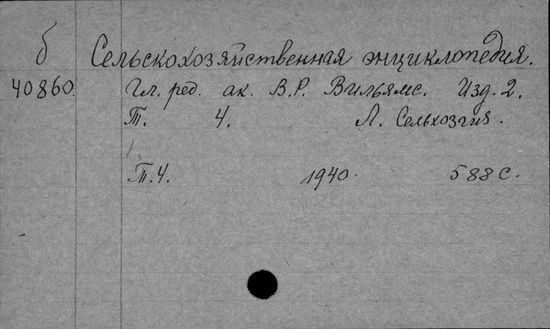 б Сельскохозяйственная энциклопедия.
40860. Гл. ред. ак. В.Р. Вильямс. Изд. 2.
Т. 4. Л. Сельхозгиз.
Т.4. 1940. 588 с.